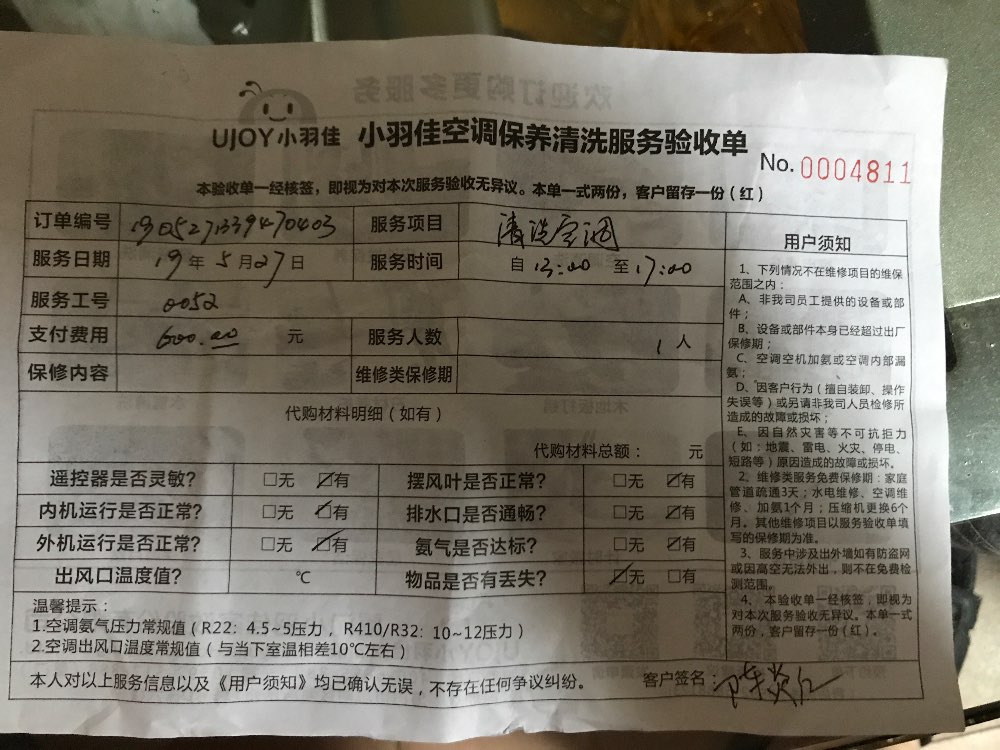 UJOY小羽佳 小羽佳空调保养清洗服务验收单
No. 0004811
本验收单一经核签，即视为对本次服务验收无异议。本单一式两份，客户留存一份（红）
订单编号 服务项目 清洗空调
服务日期 19年5月27日 服务时间 自13:00 至17:00
服务工号 0052
支付费用 600.00 元 服务人数 1人
保修内容 维修类保修期
代购材料明细（如有）
代购材料总额： 元
遥控器是否灵敏？ □无 ☑有 摆风叶是否正常？ □无 ☑有
内机运行是否正常？ □无 ☑有 排水口是否通畅？ □无 ☑有
外机运行是否正常？ □无 ☑有 氨气是否达标？ □无 ☑有
出风口温度值？ ℃ 物品是否有丢失？ ☑无 □有
温馨提示：
1.空调氨气压力常规值（R22：4.5~5压力，R410/R32：10~12压力）
2.空调出风口温度常规值（与当下室温相差10℃左右）
本人对以上服务信息以及《用户须知》均已确认无误，不存在任何争议纠纷。 客户签名：
用户须知
1、下列情况不在维修项目的维保
范围之内：
A、非我司员工提供的设备或部
件；
B、设备或部件本身已经超过出厂
保修期；
C、空调空机加氨或空调内部漏
氨；
D、因客户行为（擅自装卸、操作
失误等）或另请非我司人员检修所
造成的故障或损坏；
E、因自然灾害等不可抗拒力
（如：地震、雷电、火灾、停电、
短路等）原因造成的故障或损坏。
2、维修类服务免费保修期：家庭
管道疏通3天；水电维修、空调维
修、加氨1个月；压缩机更换6个
月。其他维修项目以服务验收单填
写的保修期为准。
3、服务中涉及出外墙如有防盗网
或因高空无法外出，则不在免费检
测范围。
4、本验收单一经核签，即视为
对本次服务验收无异议。本单一式
两份，客户留存一份（红）。